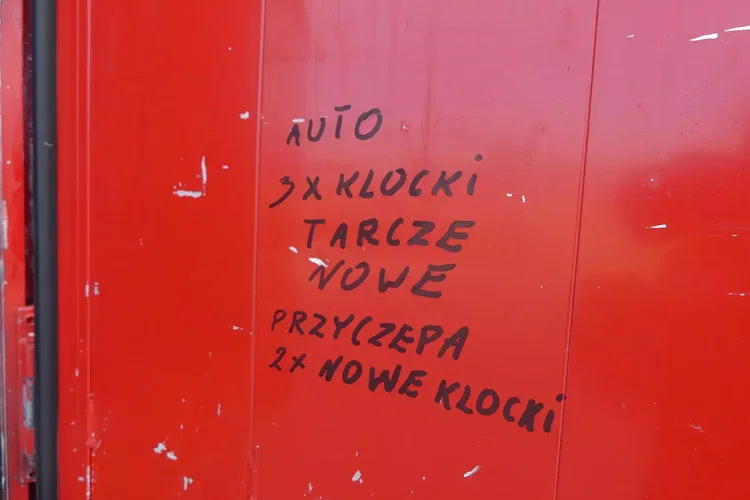 AUTO
3X KLOCKi
TARCZE
NOWE
PRZYCZEPA
2X NOWE KLOCKi